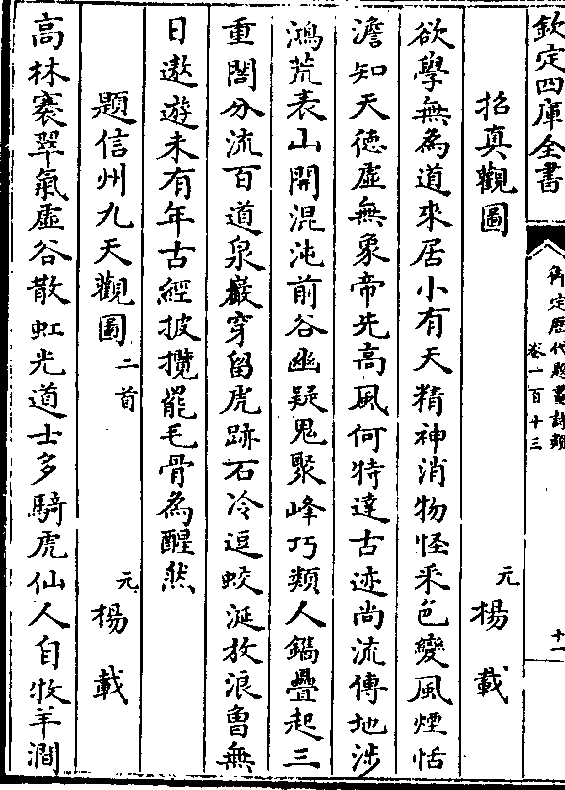 欽定四庫全書
御定歷代題畫詩類
卷一百十三
十一
招真觀圖
元
楊載
欲學無為道來居小有天精神消物怪采色變風煙恬
澹知天德虛無象帝先高風何特達古迹尚流傳地涉
鴻荒表山開混沌前谷幽疑鬼聚峰巧類人鐫疊起三
重閣分流百道泉巖穿留虎跡石冷逗蛟涎放浪曾無
日遨遊未有年古經披攬罷毛骨為醒然
題信州九天觀圖二首
元
楊載
高林褰翠氣虛谷散虹光道士多騎虎仙人自牧羊澗